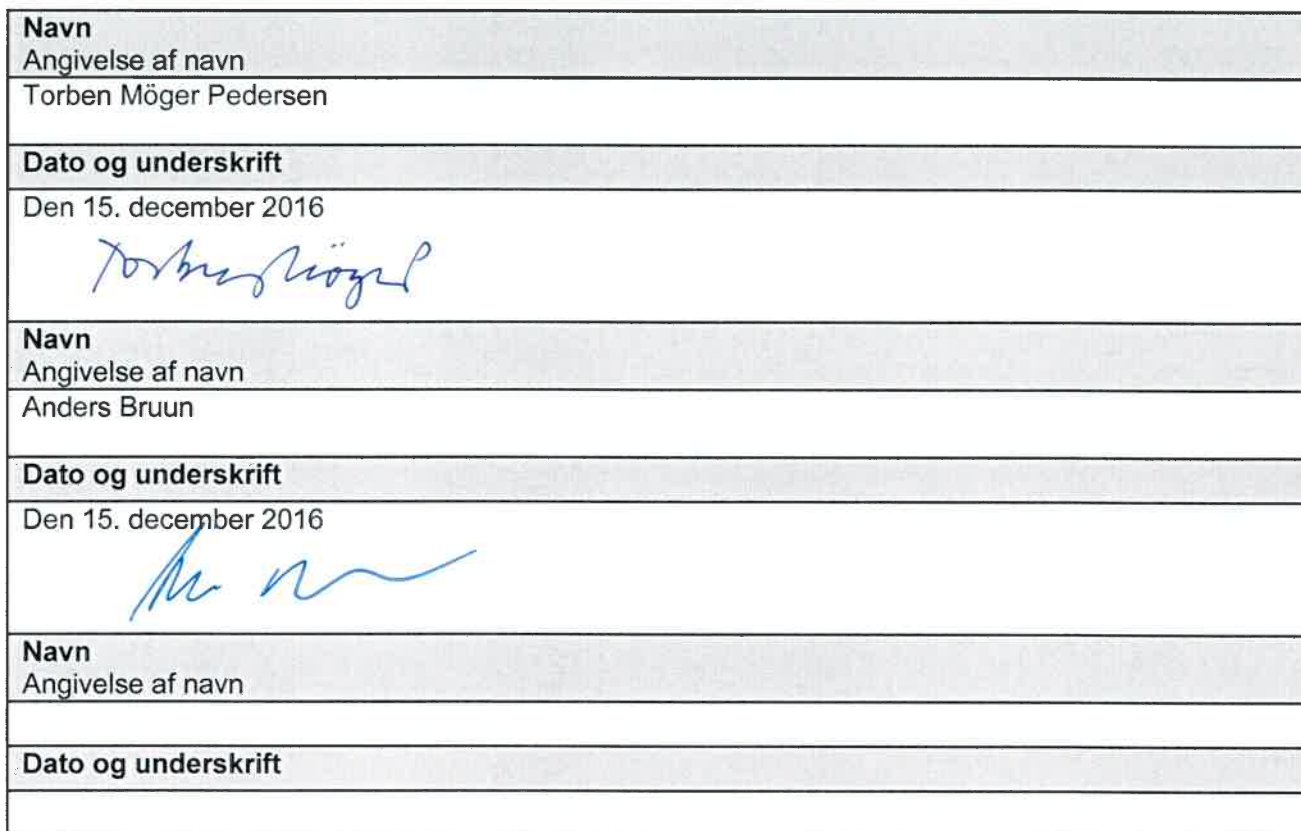 Navn
Angivelse af navn
Torben Möger Pedersen
Dato og underskrift
Den 15. december 2016
Torben Möger P
Navn
Angivelse af navn
Anders Bruun
Dato og underskrift
Den 15. december 2016
Navn
Angivelse af navn
Dato og underskrift